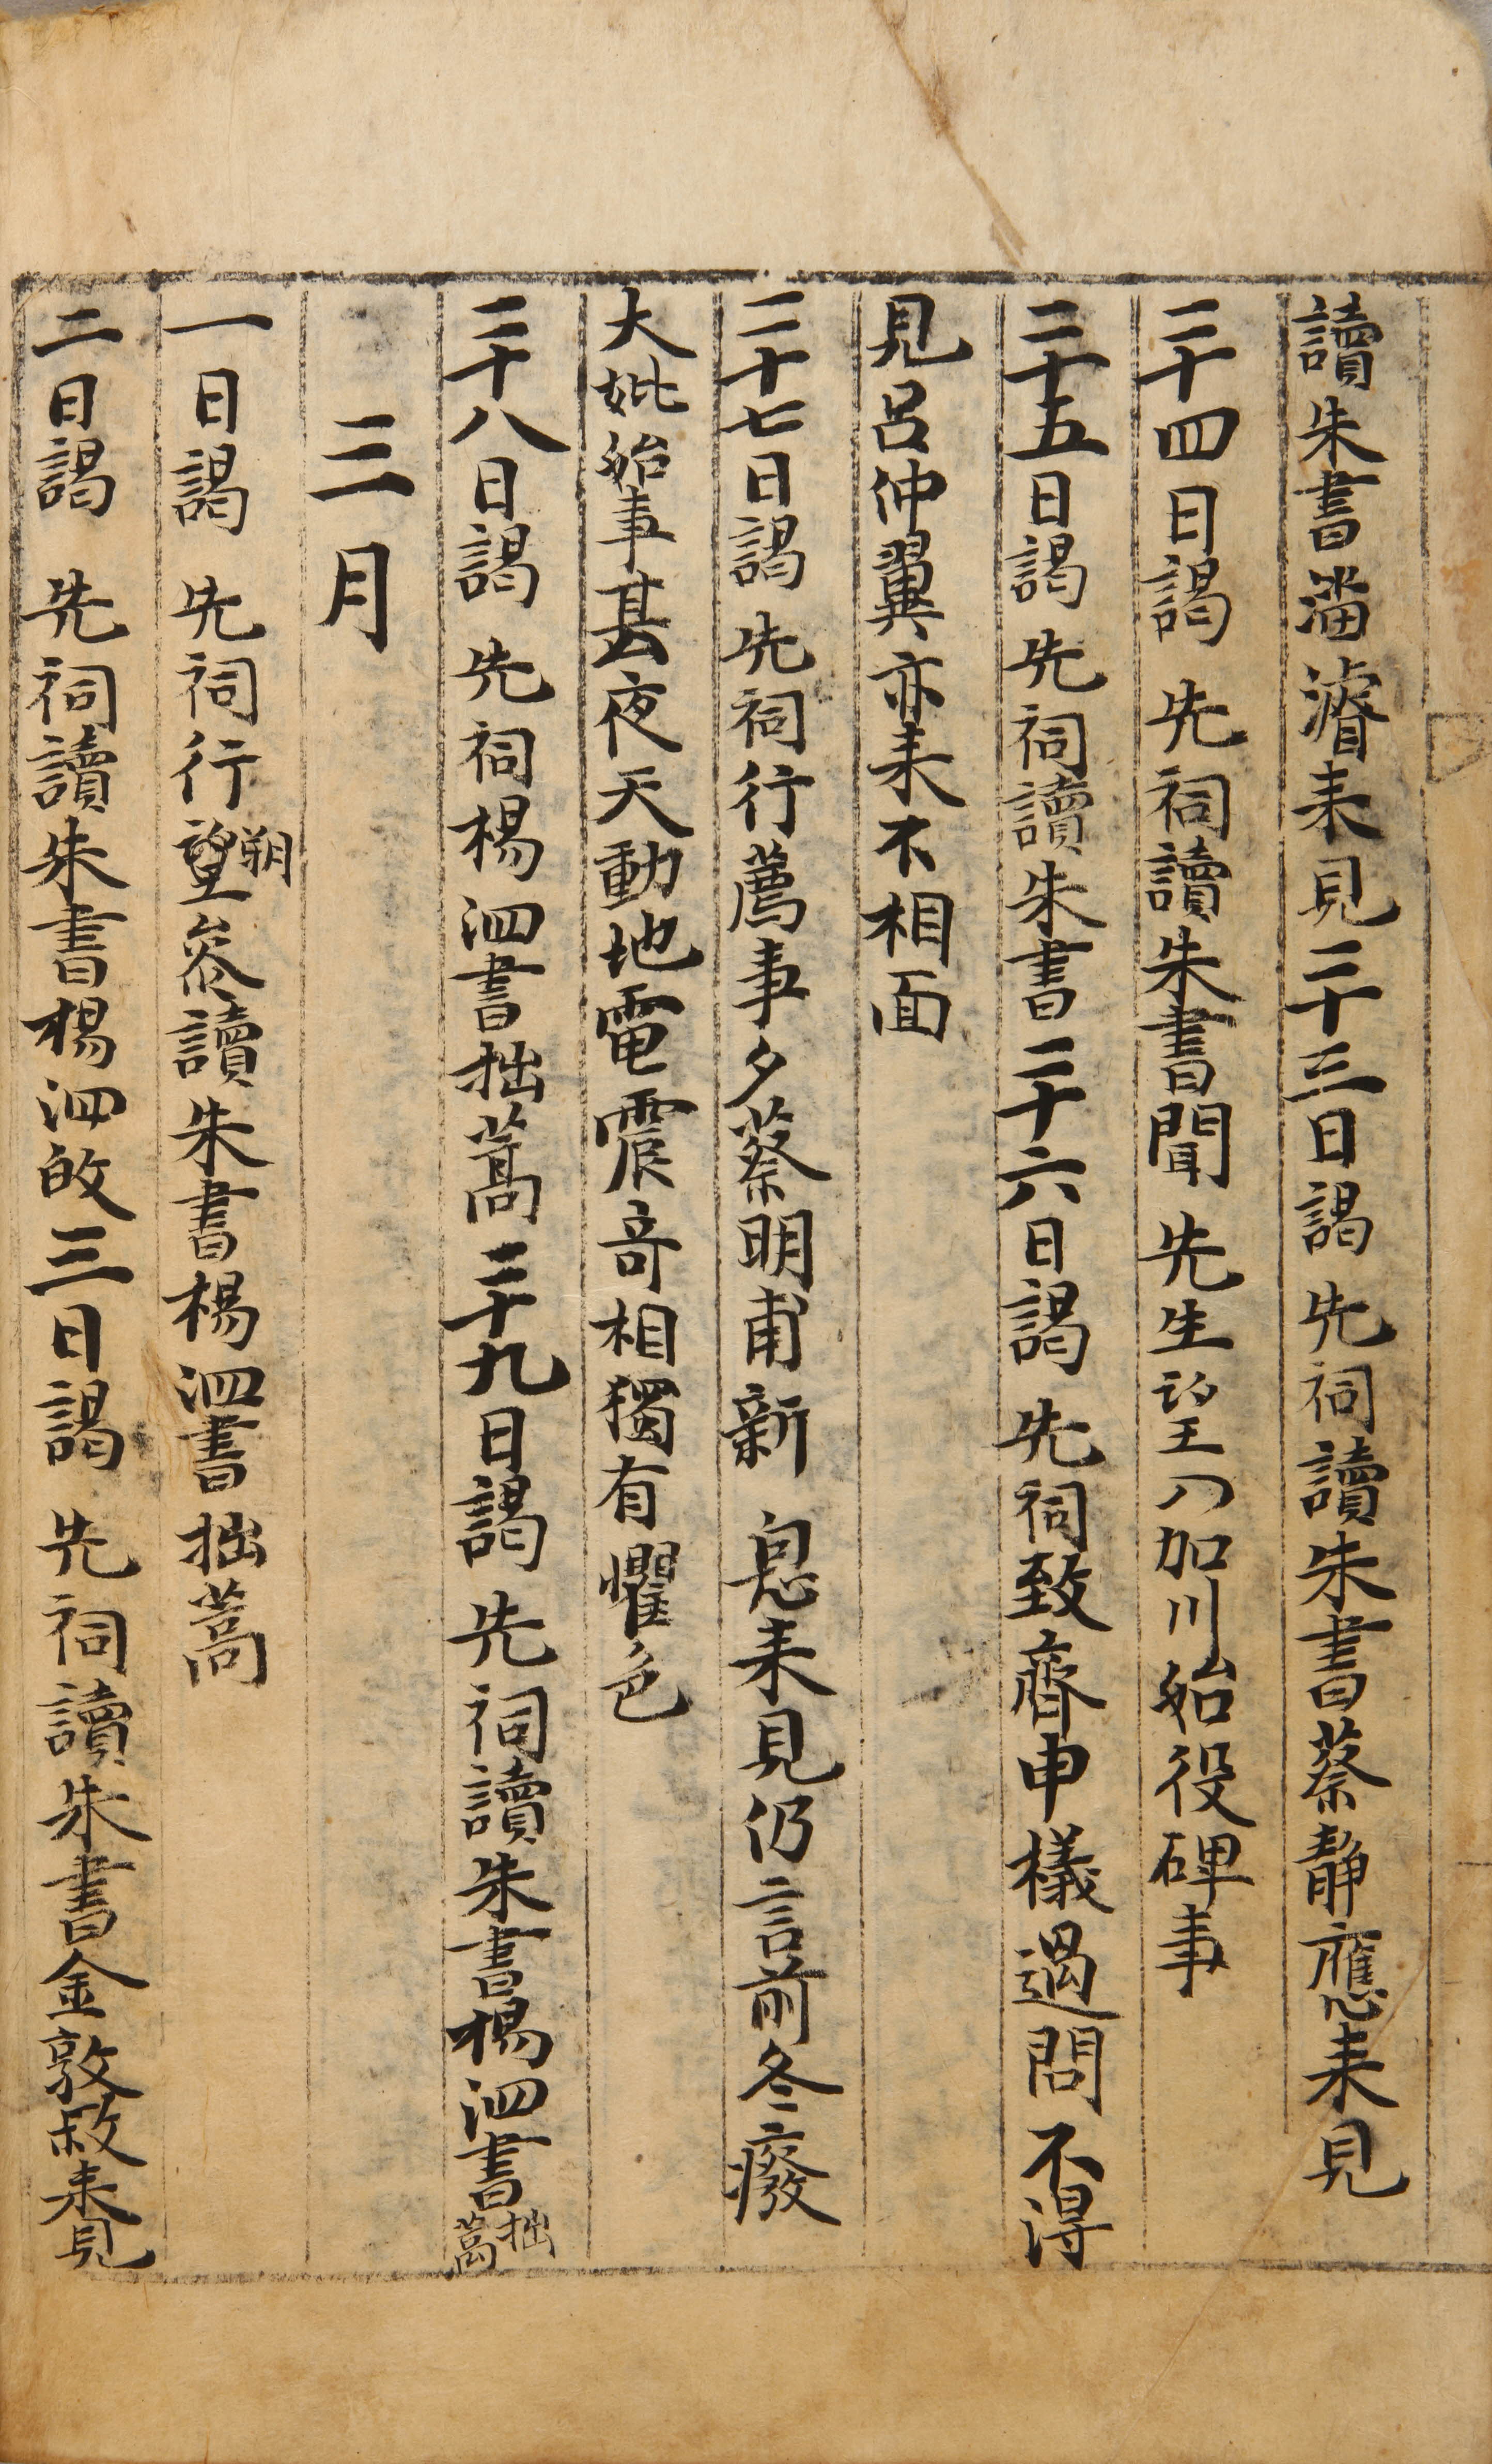 讀朱書潘濬来見二十三日謁先祠讀朱書蔡靜應来見
二十四日謁先祠讀朱書聞先生望入加川始役碑事
二十五日謁先祠讀朱書二十六日謁先祠致齊申樣過問不得
見呂仲翼亦来不相面
二十七日謁先祠行薦事夕蔡明甫新息来見仍言前冬癈
大妣始事甚夜天動地電震竒相獨有懼色
二十八日謁先祠楊泗書拙蒿二十九日謁先祠讀朱書楊泗書拙蒿
三月
一日謁先祠行朔望叅讀朱書楊泗書拙蒿
二日謁先祠讀朱書楊泗皈三日謁先祠讀朱書金敦叙来見